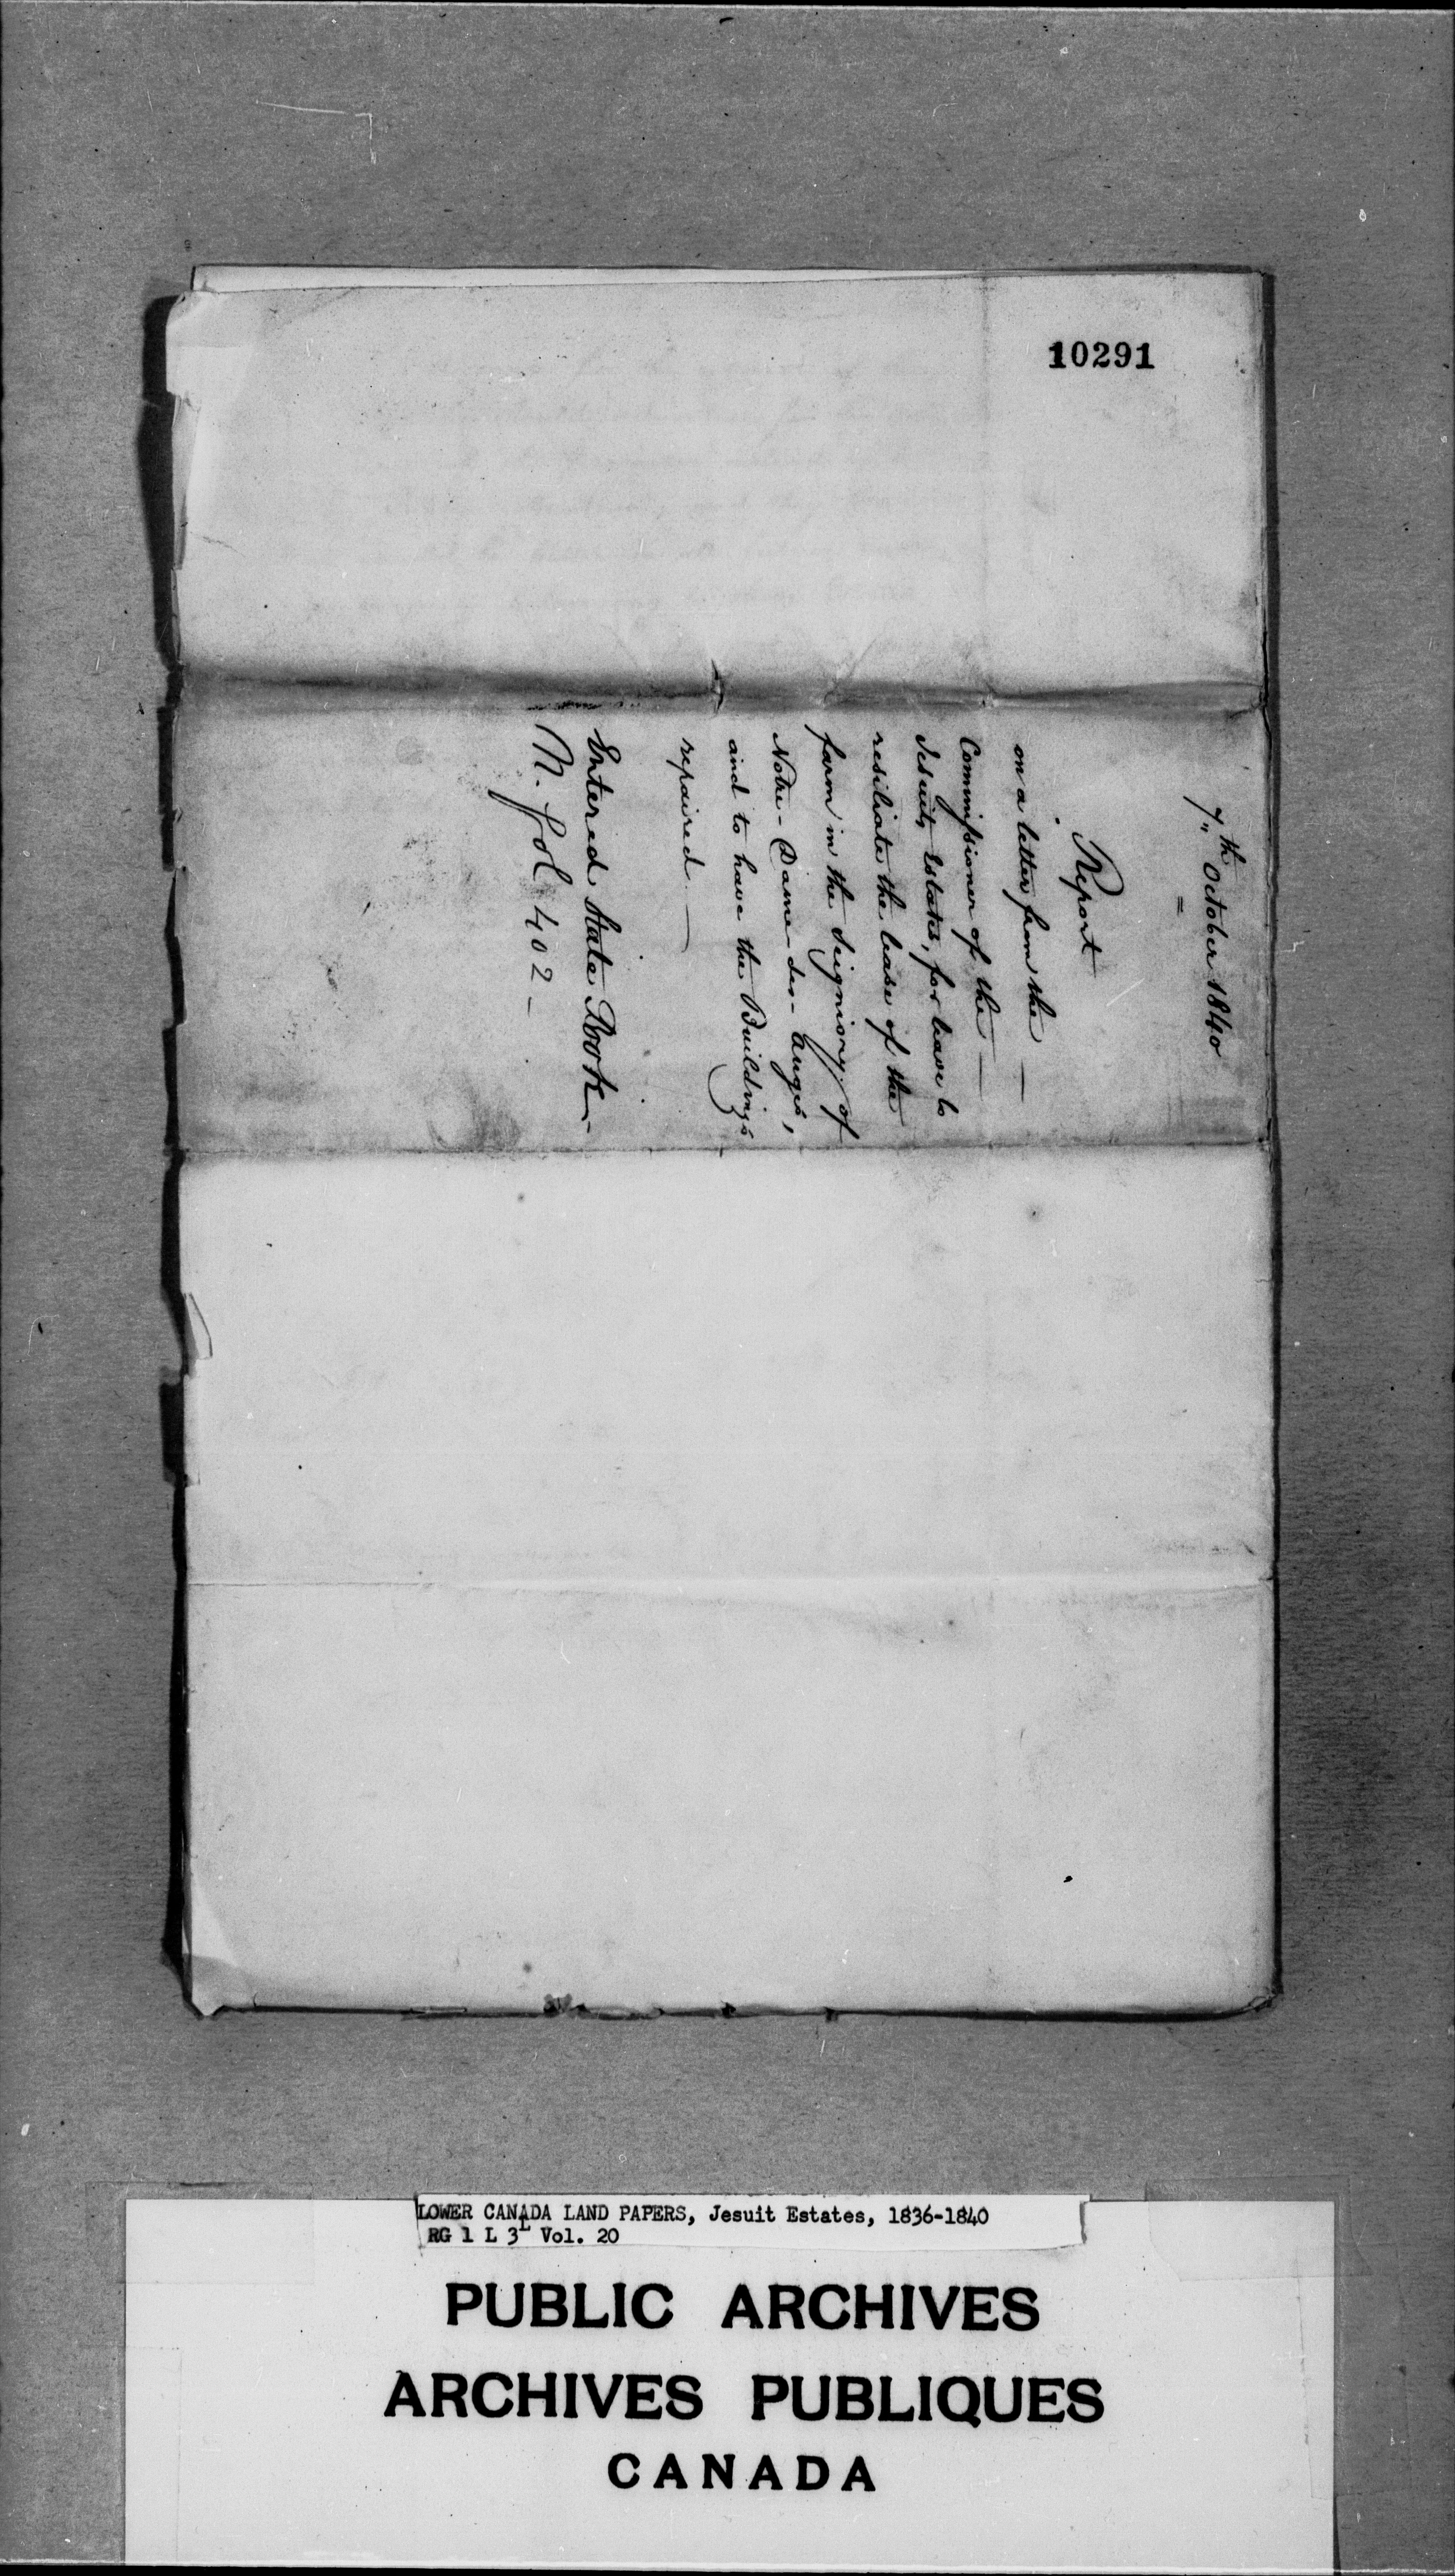 10291
7th October 1840
Report
on a letter from the —
Commissioner of the —
Jesuits Estates, for leave to
resiliate the lease of the
farm in the Seigniory of
Notre-Dame-des-Anges,
and to have the Buildings
repaired —
Entered State Book -
M. fol 402 -
LOWER CANADA LAND PAPERS, Jesuit Estates, 1836-1840
RG 1 L 3L Vol. 20
PUBLIC ARCHIVES
ARCHIVES PUBLIQUES
CANADA